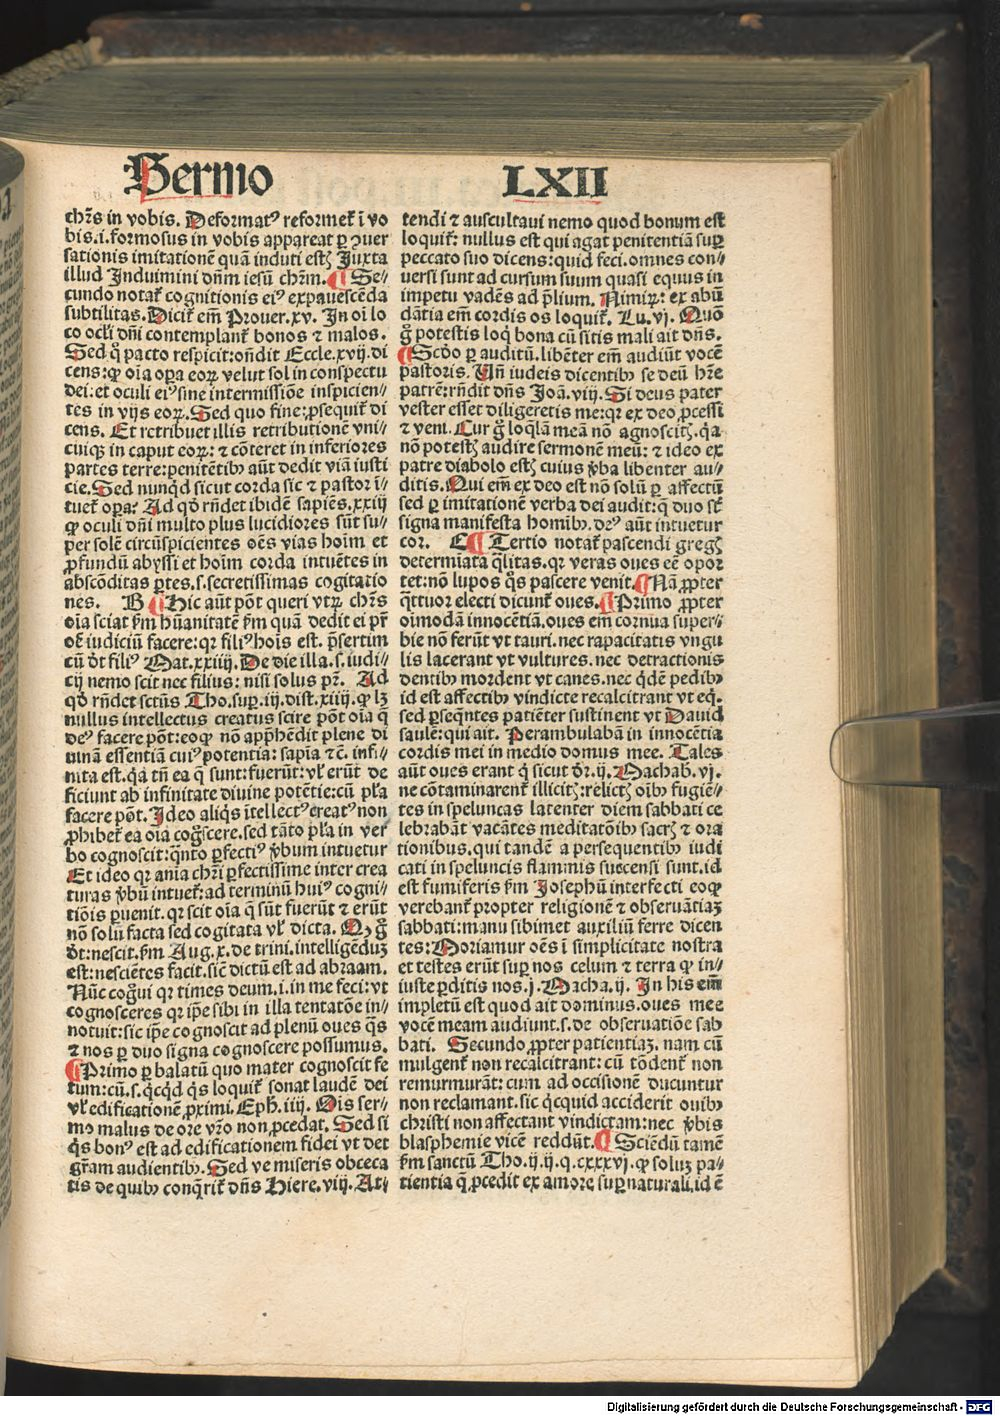 Sermo LXII
chr̃s in vobis. Deformatꝰ reformet᷑ ĩ vo
bis.i.formosus in vobis appareat ꝑ ꝯuer
sationis imitationẽ quã induti estꝭ Juxta
illud Induimini dñm iesũ chr̃m. ¶ Se⸗
cundo notat᷑ cognitionis eiꝰ expauescẽda
subtilitas. Dicit᷑ em̃ Prouer.xv. In oĩ lo
co ocl̓i dñi contemplant᷑ bonos ⁊ malos.
Sed q̊ pacto respicit:oñdit Eccle.xvij.di
cens:ꝙ oĩa oꝑa eoꝝ velut sol in conspectu
dei:et oculi eiꝰ sine intermissiõe inspicien⸗
tes in vijs eoꝝ. Sed quo fine:ꝓsequit᷑ di
cens. Et retribuet illis retributionẽ vni⸗
cuiqꝫ in caput eoꝝ: ⁊ cõteret in inferiores
partes terre:penitẽtibꝰ aũt dedit viã iusti
cie. Sed nunq̃d sicut corda sic ⁊ pastor ĩ⸗
tuet᷑ oꝑa? Ad qð rñdet ibidẽ sapiẽs.xxiij
ꝙ oculi dñi multo plus lucidiores sũt su⸗
per solẽ circũspicientes oẽs vias hoĩm et
ꝓfundũ abyssi et hoĩm corda intuẽtes in
abscõditas ꝑtes.s.secretissimas cogitatio
nes. B ¶ Hic aũt põt queri vtꝝ chr̃s
oĩa sciat ẜm hũanitatẽ ẜm quã dedit ei pr̃
oẽ iudiciũ facere:qꝛ filiꝰ hoĩs est. p̃sertim
cũ ðt filiꝰ Mat.xxiiij. De die illa.s.iudi⸗
cij nemo scit nec filius: nisi solus pr̃. Ad
qð rñdet sctũs Tho.suꝑ.iij.dist.xiiij.ꝙ lꝫ
nullus intellectus creatus scire põt oĩa q̃
deꝰ facere põt:eoꝙ nõ app̃hẽdit plene di
uinã essentiã cuiꝰ potentia: sapĩa ⁊c̃. infi⸗
nita est. q̃a tñ ea q̃ sunt:fuerũt:vl̓ erũt de
ficiunt ab infinitate diuine potẽtie:cũ pl̓a
facere põt. Ideo aliq̃s ĩtellectꝰ creatꝰ non
ꝓhibet᷑ ea oĩa cogn̊scere.sed tãto pl̓a in ver
bo cognoscit:q̃nto ꝑfectiꝰ v̓bum intuetur
Et ideo qꝛ anĩa chr̃i ꝑfectissime inter crea
turas v̓bũ intuet᷑:ad terminũ huiꝰ cogni⸗
tiõis ꝑuenit. qꝛ scit oĩa q̃ sũt fuerũt ⁊ erũt
nõ solũ facta sed cogitata vl̓ dicta. Qꝫ g̊
ðt:nescit. ẜm Aug.x.de trini.intelligẽduꝫ
est:nesciẽtes facit. sic̃ dictũ est ad abraam.
Nũc cogn̊ui qꝛ times deum.i.in me feci:vt
cognosceres qꝛ ip̃e sibi in illa tentatõe in⸗
notuit:sic ip̃e cognoscit ad plenũ oues q̃s
⁊ nos ꝑ duo signa cognoscere possumus.
¶ Primo ꝑ balatũ quo mater cognoscit fe
tum:cũ.s.q̃cq̃d q̃s loquit᷑ sonat laudẽ dei
vl̓ edificationẽ ꝓximi. Eph.iiij. Ois ser⸗
mo malus de ore vr̃o non ꝓcedat. Sed si
q̃s bonꝰ est ad edificationem fidei vt det
gr̃am audientibꝰ. Sed ve miseris obceca
tis de quibꝰ conq̃rit᷑ dñs Hiere.viij. Att⸗
tendi ⁊ auscultaui nemo quod bonum est
loquit᷑: nullus est qui agat penitentiã suꝑ
peccato suo dicens:quid feci.omnes con⸗
uersi sunt ad cursum suum quasi equus in
impetu vadẽs ad p̃lium. Nimiꝝ: ex abũ
dãtia em̃ cordis os loquit᷑. Lu.vj. Quõ
g̊ potestis loq̃ bona cũ sitis mali ait dñs.
¶ Scðo ꝑ auditũ.libẽter em̃ audiũt vocẽ
pastoris. Uñ iudeis dicentibꝰ se deũ hr̃e
patrẽ:rñdit dñs Joã.viij. Si deus pater
vester esset diligeretis me:qꝛ ex deo ꝓcessi
⁊ veni. Cur g̊ loq̃lam meã nõ agnoscitꝭ.q̃a
nõ potestꝭ audire sermonẽ meũ: ⁊ ideo ex
patre diabolo estꝭ cuius v̓ba libenter au⸗
ditis. Qui em̃ ex deo est nõ solũ ꝑ affectũ
sed ꝑ imitationẽ verba dei audit:q̃ duo st̃
signa manifesta homĩbꝰ.deꝰ aũt intuetur
cor. C ¶ Tertio notat᷑ pascendi gregꝭ
determiata q̃litas.qꝛ veras oues eẽ opor
tet:nõ lupos q̃s pascere venit. ¶ Nã ꝓpter
q̃ttuor electi dicunt᷑ oues. ¶ Primo ꝓpter
oĩmodã innocẽtiã.oues em̃ cornua super⸗
bie nõ ferũt vt tauri.nec rapacitatis vngu
lis lacerant vt vultures.nec detractionis
dentibꝰ mordent vt canes.nec q̃dẽ pedibꝰ
id est affectibꝰ vindicte recalcitrant vt eq̃.
sed ꝑseq̃ntes patiẽter sustinent vt Dauid
saulẽ:qui ait. Perambulabã in innocẽtia
cordis mei in medio domus mee. Tales
aũt oues erant q̃ sicut ðr.ij. Machab.vj.
ne cõtaminarent᷑ illicitꝭ:relictꝭ oĩbꝰ fugiẽ⸗
tes in speluncas latenter diem sabbati ce
lebrabãt vacãtes meditatõibꝰ sacrꝭ ⁊ ora
tionibus.qui tandẽ a persequentibꝰ iudi
cati in speluncis flammis succensi sunt.id
est fumiferis ẜm Josephũ interfecti eoꝙ
verebant᷑ propter religionẽ ⁊ obseruãtiaꝫ
sabbati:manu sibimet auxiliũ ferre dicen
tes: Moriamur oẽs ĩ simplicitate nostra
et testes erũt suꝑ nos celum ⁊ terra ꝙ in⸗
iuste ꝑditis nos.j. Macha.ij. In his em̃
impletũ est quod ait dominus.oues mee
vocẽ meam audiunt.s.de obseruatiõe sab
bati. Secundo ꝓpter patientiaꝫ. nam cũ
mulgent᷑ non recalcitrant: cũ tõdent᷑ non
remurmurãt: cum ad occisionẽ ducuntur
non reclamant.sic q̃cquid acciderit ouibꝰ
christi non affectant vindictam:nec v̓bis
blasphemie vicẽ reddũt. ¶ Sciẽdũ tamẽ
ẜm sanctũ Tho.ij.ij.q.cxxxvj.ꝙ soluꝫ pa⸗
tientia q̃ ꝓcedit ex amore suꝑnaturali.id ẽ
Digitalisierung gefördert durch die Deutsche Forschungsgemeinschaft - DFG